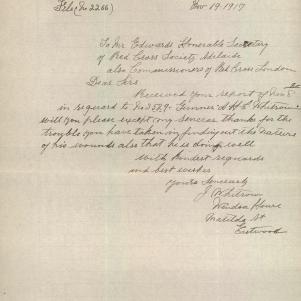 File (No 2266) Nov 19. 1917
To Mr Edwards Honorable Secretary
of Red Cross Society Adelaide
also Commissioners of Red Cross London
Dear Sirs.
Received your report of Nov 5th
in reguard to No 3579. Gunner A H L Whitrow
will you please except my sencere thanks for the
trouble you have taken in finding out the nature
of his wounds also that he is doing well
With kindest reguards
and best wishes
Yours Sencerely
J Whitrow
Windsa House
Matilda St
Eastwood